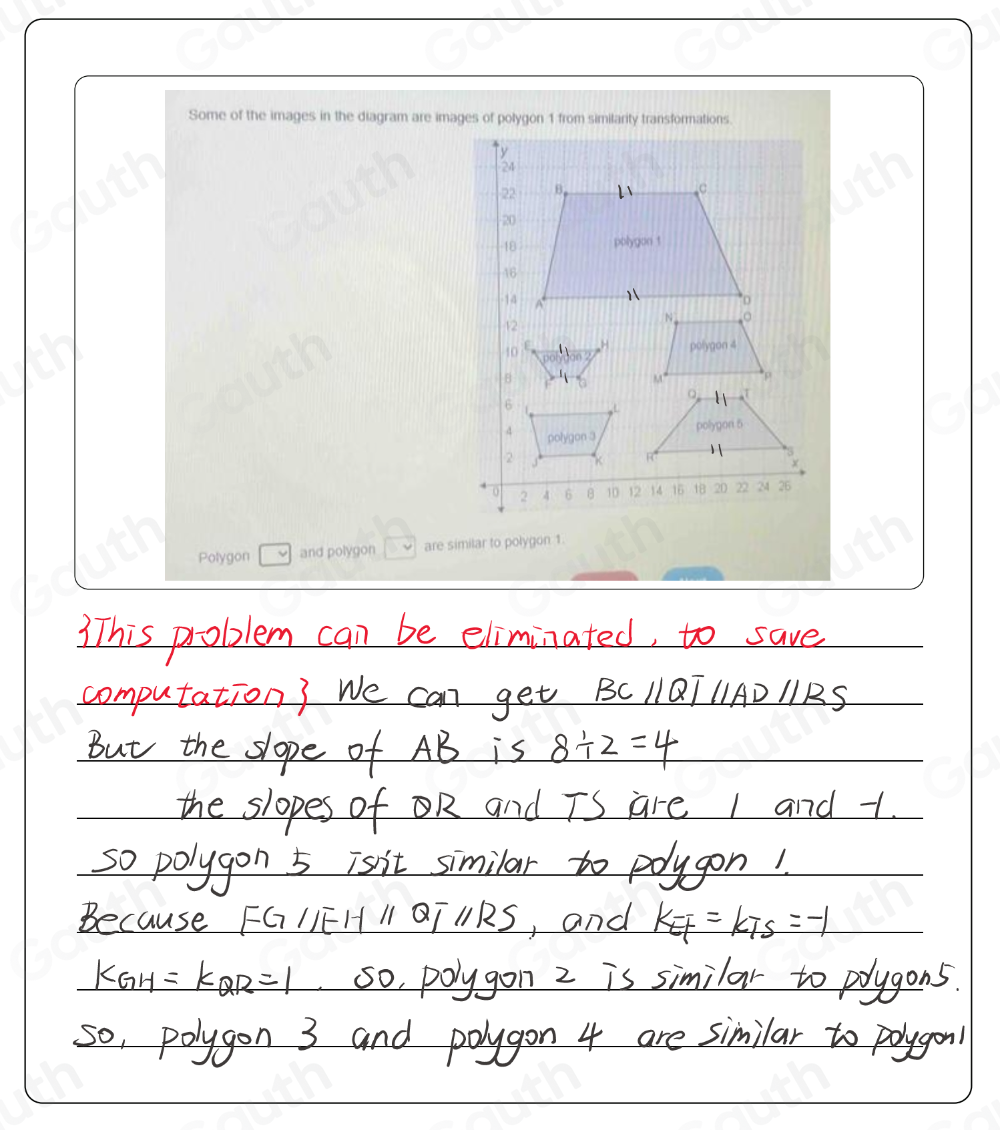 Some of the images in the diagram are images of polygon 1 from similarity transformations.
y
24
22
20
18
16
14
12
10
8
6
4
2
0
2 4 6 8 10 12 14 16 18 20 22 24 26
x
B C
polygon 1
A D
N O
polygon 4
M P
E H
polygon 2
F G
I L
polygon 3
J K
Q T
polygon 5
R S
Polygon and polygon are similar to polygon 1.
{This problem can be eliminated, to save
computation} We can get BC//QT//AD//RS
But the slope of AB is 8÷2=4
the slopes of QR and TS are 1 and -1.
so polygon 5 isn't similar to polygon 1.
Because FG//EH//QT//RS, and kEF=kTS=-1
KGH=KQR=1. so, polygon 2 is similar to polygon5.
So, polygon 3 and polygon 4 are similar to polygon1
Gauth